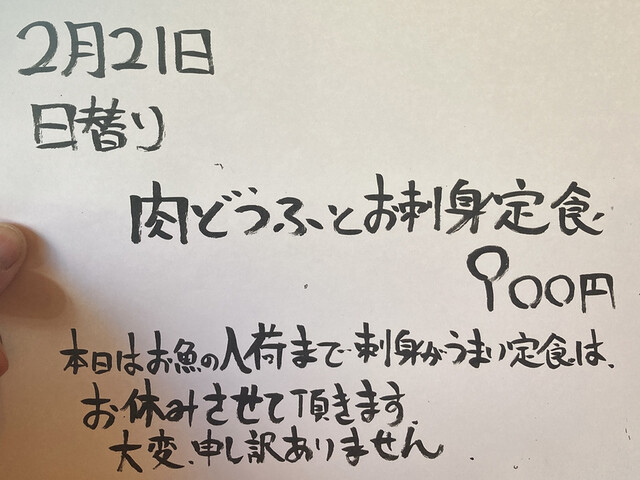 2月21日
日替り
肉どうふとお刺身定食
900円
本日はお魚の入荷まで刺身がうまい定食は、
お休みさせて頂きます。
大変、申し訳ありません